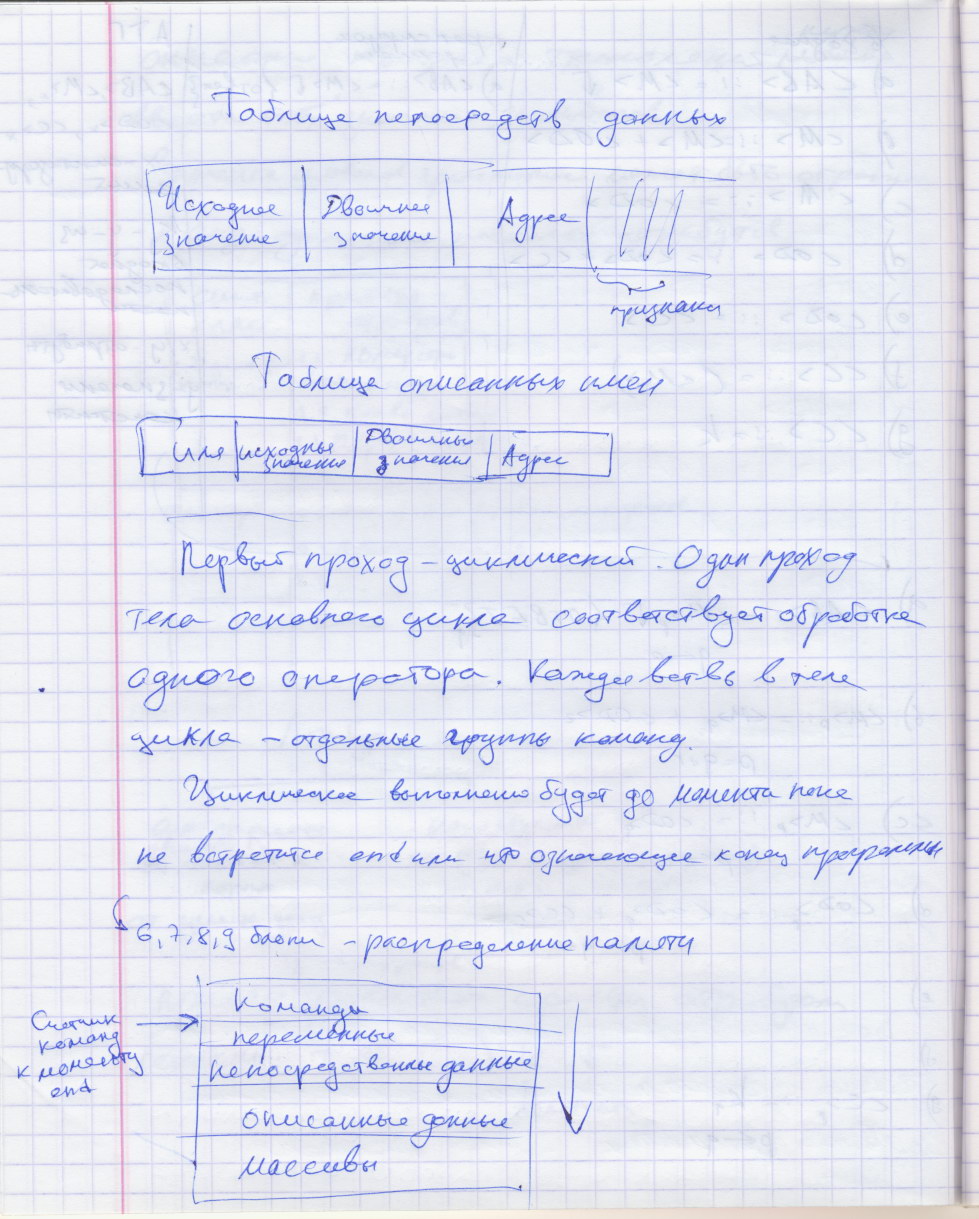 Таблица непосредств данных
Исходное значение
Двоичное значение
Адрес
признаки
Таблица описанных имен
Имя
исходные значение
Двоичные значения
Адрес
Первый проход – циклический. Один проход
тела основного цикла соответствует обработке
одного оператора. Каждая ветвь в теле
цикла – отдельные группы команд.
Циклическое выполнено будет до момента пока
не встретится end или что означающее конец программы
6, 7, 8, 9 блоки – распределение памяти
Счетчик
команд
к моменту
end
Команды
переменные
Непосредственные данные
Описанные данные
Массивы